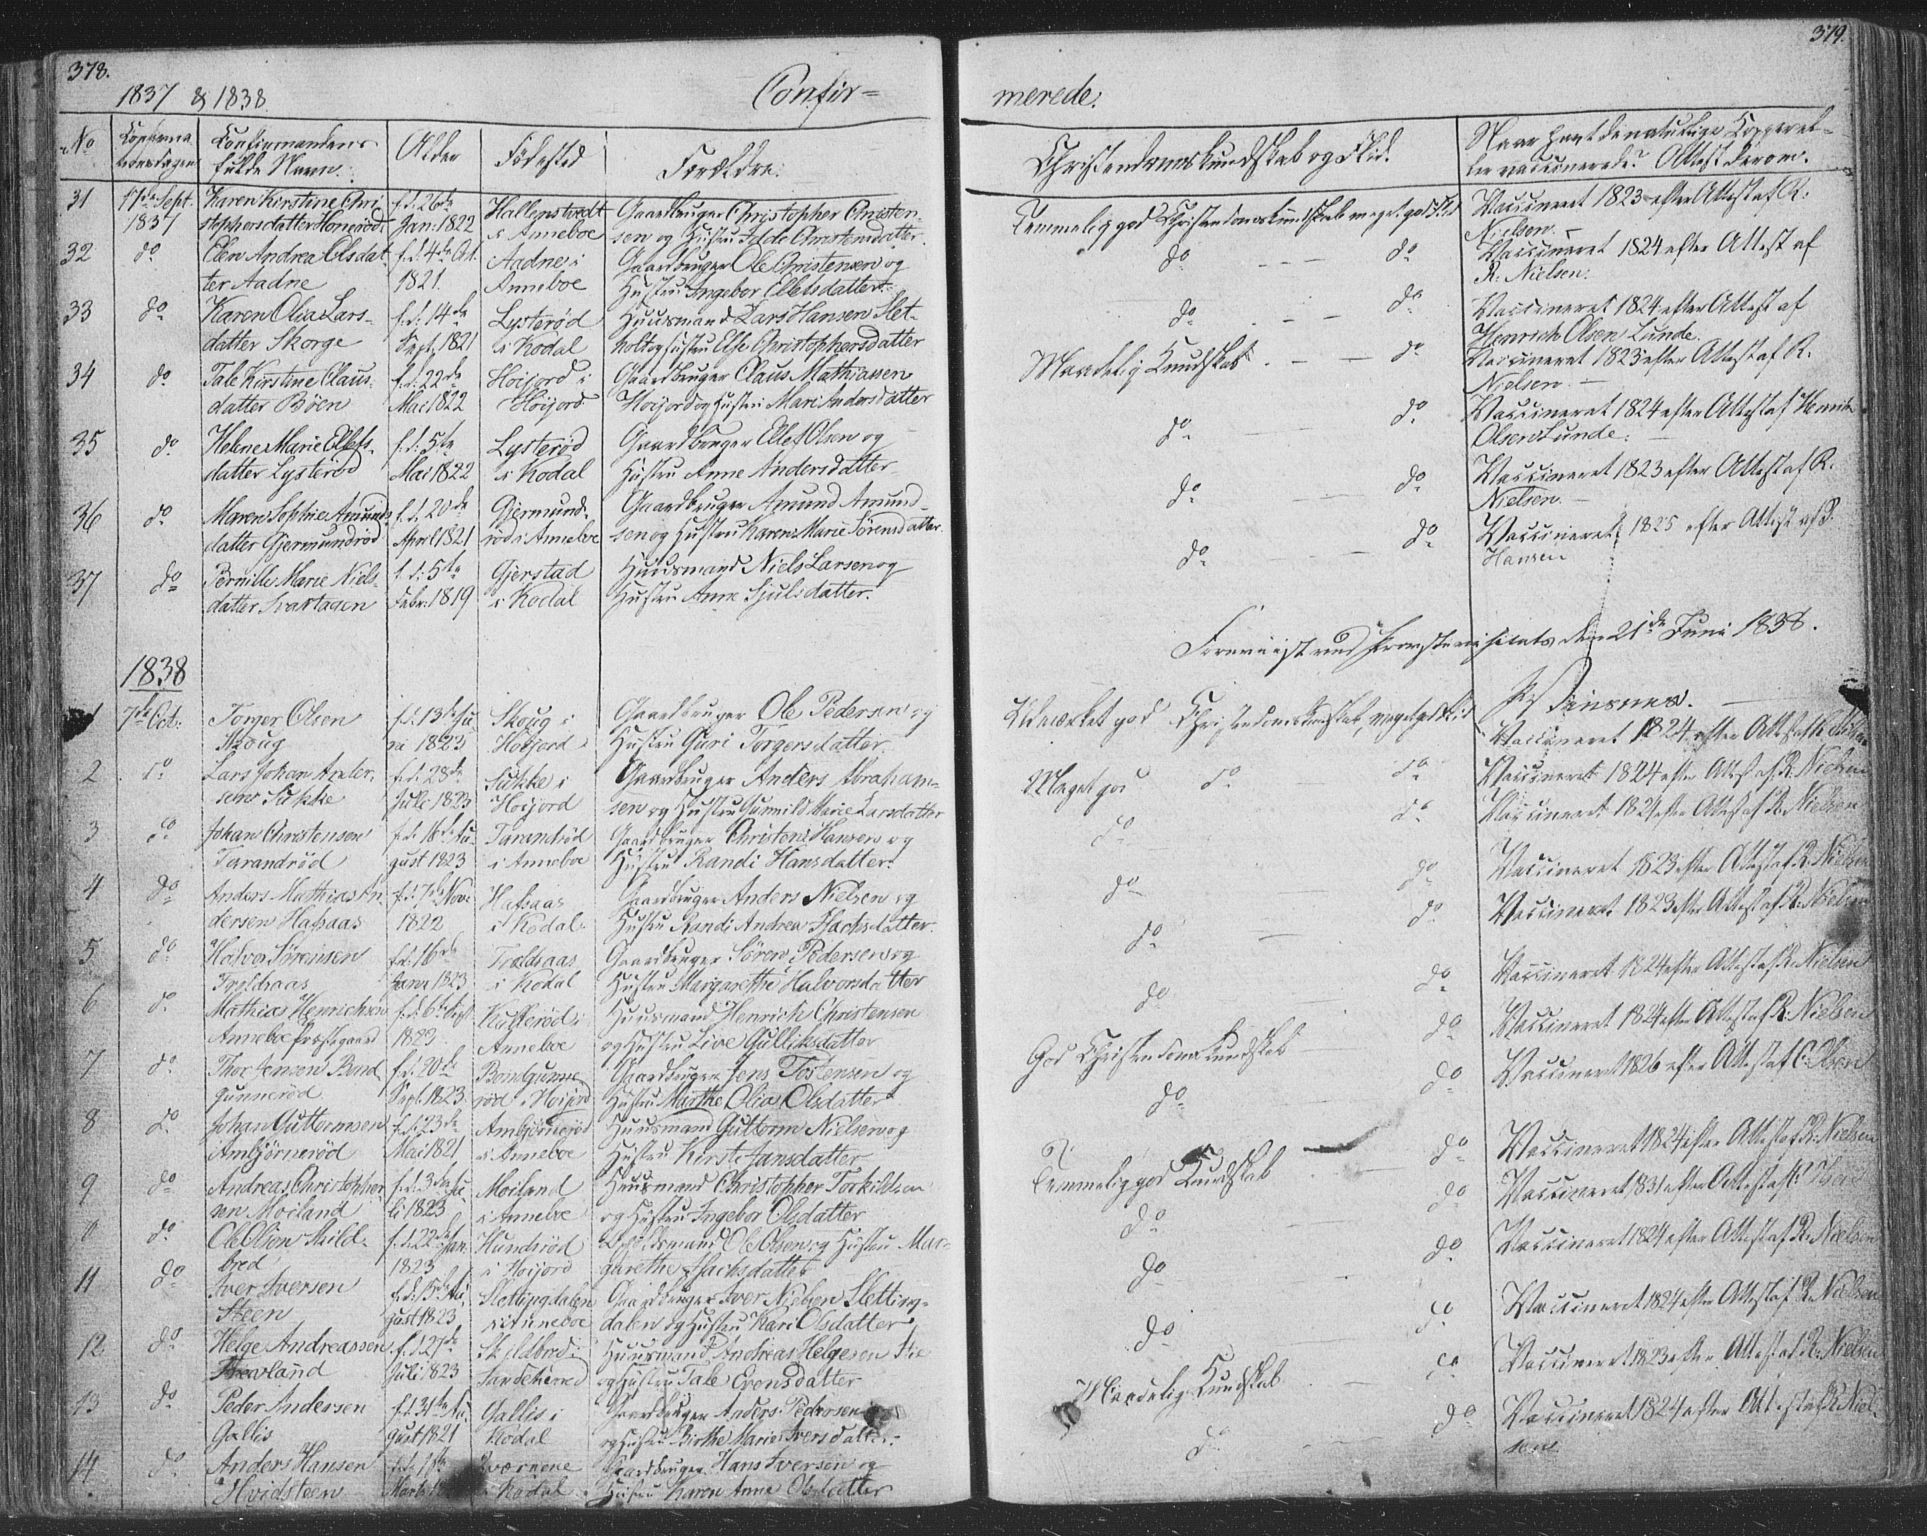 378.
1837 & 1838.
Confir=
No
Confirma-
tionsdagen
Confirmandens
fulde Navn.
Alder
Födested
Forældre.
31
17de Sept.
1837
Karen Kirstine Chri-
stophersdatter Honeröd.
f. d. 26de
Jan: 1822
Hallenstvedt
i Anneboe
Gaardbruger Christopher Christen-
sen og Hustru Idde Christensdatter.
32
do
Elen Andrea Olsdat-
ter Aadne
f. d. 4de Oct.
1821.
Aadne i
Anneboe
Gaardbruger Ole Christensen og
Hustru Ingebor Ellefsdatter.
33
do
Karen Olia Lars-
datter Skorge
f. d. 14de
Sept. 1821
Lysteröd
i Kodal
Huusmand Lars Hansen Slet-
holt og Hustru Else Christophersdatter
34
do
Tale Kirstine Claus-
datter Böen
f. d. 22de
Mai 1822
Höijord i
Höijord.
Gaardbruger Claus Mathiassen
Hoijord og Hustru Mari Andersdatter
35
do
Helene Marie Ellefs-
datter Lysteröd
f. d. 5te
Mai 1822
Lysteröd
i Kodal
Gaardbruger Ellef Olsen og
Hustru Anne Andersdatter
36
do
Maren Sophie Amunds-
datter Gjermundröd
f. d. 20de
April 1821
Gjermund-
röd i Anneboe
Gaardbruger Amund Amund-
sen og Hustru Karen Marie Sörensdatter.
37
do
Pernille Marie Niels-
datter Svartagen
f. d. 5te
Febr. 1819
Gjerstad
i Kodal
Huusmand Niels Larsen og
Hustru Anne Hjulsdatter.
1838
1
7de Oct:
Torger Olsen
Skoug
f. d. 13de Ju-
ni 1823
Skoug i
Höijord
Gaardbruger Ole Pedersen og
Hustru Guri Torgersdatter.
2
do
Lars Johan Ander-
sen Sukke
f. d. 28de
Juli 1823
Sukke i
Hoijord
Gaardbruger Anders Abraham-
sen og Hustru Gunnild Marie Larsdatter
3
do
Johan Christensen
Tarandröd
f. d. 18de Au-
gust 1823
Tarandröd
i Anneboe
Gaardbruger Christen Hansen og
Hustru Randi Hansdatter.
4
do
Anders Mathias An-
dersen Hafsaas
f. d. 7de Nov:
1822
Hafsaas
i Kodal
Gaardbruger Anders Nielsen og
Hustru Randi Andrea Isachsdatter.
5
do
Halvor Sörensen
Troldsaas
f. d. 16de
Janv 1823
Troldsaas
i Kodal
Gaardbruger Sören Pedersen og
Hustru Margarethe Halvorsdatter
6
do
Mathias Henrichsen
Anneboe Præstegaard
f. d. 6te Sept
1823
i
Anneboe
Huusmand Henrich Christensen
og Hustru Live Gulliksdatter
7
do
Thor Jensen Bond-
gunneröd
f. d. 20de
Sept. 1823
Bondgunne-
röd i Hoijord
Gaardbruger Jens Tostensen og
Hustru Marthe Olia Olsdatter
8
do
Johan Guttormsen
Ambjörneröd
f. d. 23de
Mai 1821
Ambjörneröd
i Anneboe
Huusmand Guttorm Nielsen og
Hustru Kirsti Jansdatter
9
do
Andreas Christopher-
sen Moiland
f. d. 3de Ju-
li 1823
Moiland
i Anneboe
Huusmand Christopher Torkildsen
og Hustru Ingebor Olsdatter
0
do
Ole Olsen Skild-
bred
f. d. 22de Jan
1823
Hundröd
i Hoijord
Ole Olsen og Hustru Mar-
garethe Isachsdatter
11
do
Iver Iversen
Steen
f. d. 15de Au-
gust 1823
Slettingdalen
i Anneboe
Gaardbruger Iver Nielsen Sletting-
dalen og Hustru Kari Olsdatter
12
do
Helge Andreassen
f. d. 27de
Juli 1823
Skeldbred i
Sandeherred
Huusmand Andreas Helgesen
og Hustru Tale Evensdatter
13
do
Peder Andersen
Gallis
f. d. 31te Au-
gust 1821
Gallis i
Kodal
Gaardbruger Anders Pedersen
og Hustru Birthe Marie Iversdatter.
14
do
Anders Hansen
Hvidsteen
f. d. 11te
Marts
Kodal
Gaardbruger Hans Iversen og
Hustru Karen Anne Olsdatter
379.
merede.
Christendomskundskab og Flid.
Naar havt de naturlige Kopper el-
ler vaccinerede? Attest derom.
Temmelig god Christendomskundskab meget god Flid
Vaccineret 1823 efter Attest af R.
Nielsen.
do
do
Vaccineret 1824 efter Attest af
R. Nielsen.
do
do
Vaccineret 1824 efter Attest af
Henrich Olsen Lunde.
Maadelig Kundskab
do
Vaccineret 1823 efter Attest af R.
Nielsen.
do
do
Vaccineret 1824 efter Attest af Henrik
Olsen Lunde.
do
do
Vaccineret 1823 efter Attest af R.
Nielsen.
do
do
Vaccineret 1825 efter Attest af P.
Hansen
Foreviist ved Provstevisitats den 21de Juni 1838.
Udmærket god Christendomskundskab, meget god Flid
Vaccineret 1824 efter Attest af
Meget god
do
do
Vaccineret 1824 efter Attest af R. Nielsen
do
do
Vaccineret 1824 efter Attest af R. Nielsen
do
do
Vaccineret 1823 efter Attest af R. Nielsen
do
do
Vaccineret 1823 efter Attest af R. Nielsen
do
do
Vaccineret 1824 efter Attest af R. Nielsen
God Christendomskundskab
do
Vaccineret 1824 efter Attest af R. Nielsen
do
do
Vaccineret 1826 efter Attest af C. Olsen
Temmelig god Kundskab
do
Vaccineret 1824 efter Attest af R. Nielsen
do
do
Vaccineret 1831 efter Attest af
do
do
Vaccineret 1824 efter Attest af R. Nielsen
do
do
Vaccineret 1824 efter Attest af R. Nielsen
Maadelig Kundskab
do
Vaccineret 1823 efter Attest af R. Nielsen
do
do
Vaccineret 1824 efter Attest af R. Niel-
sen